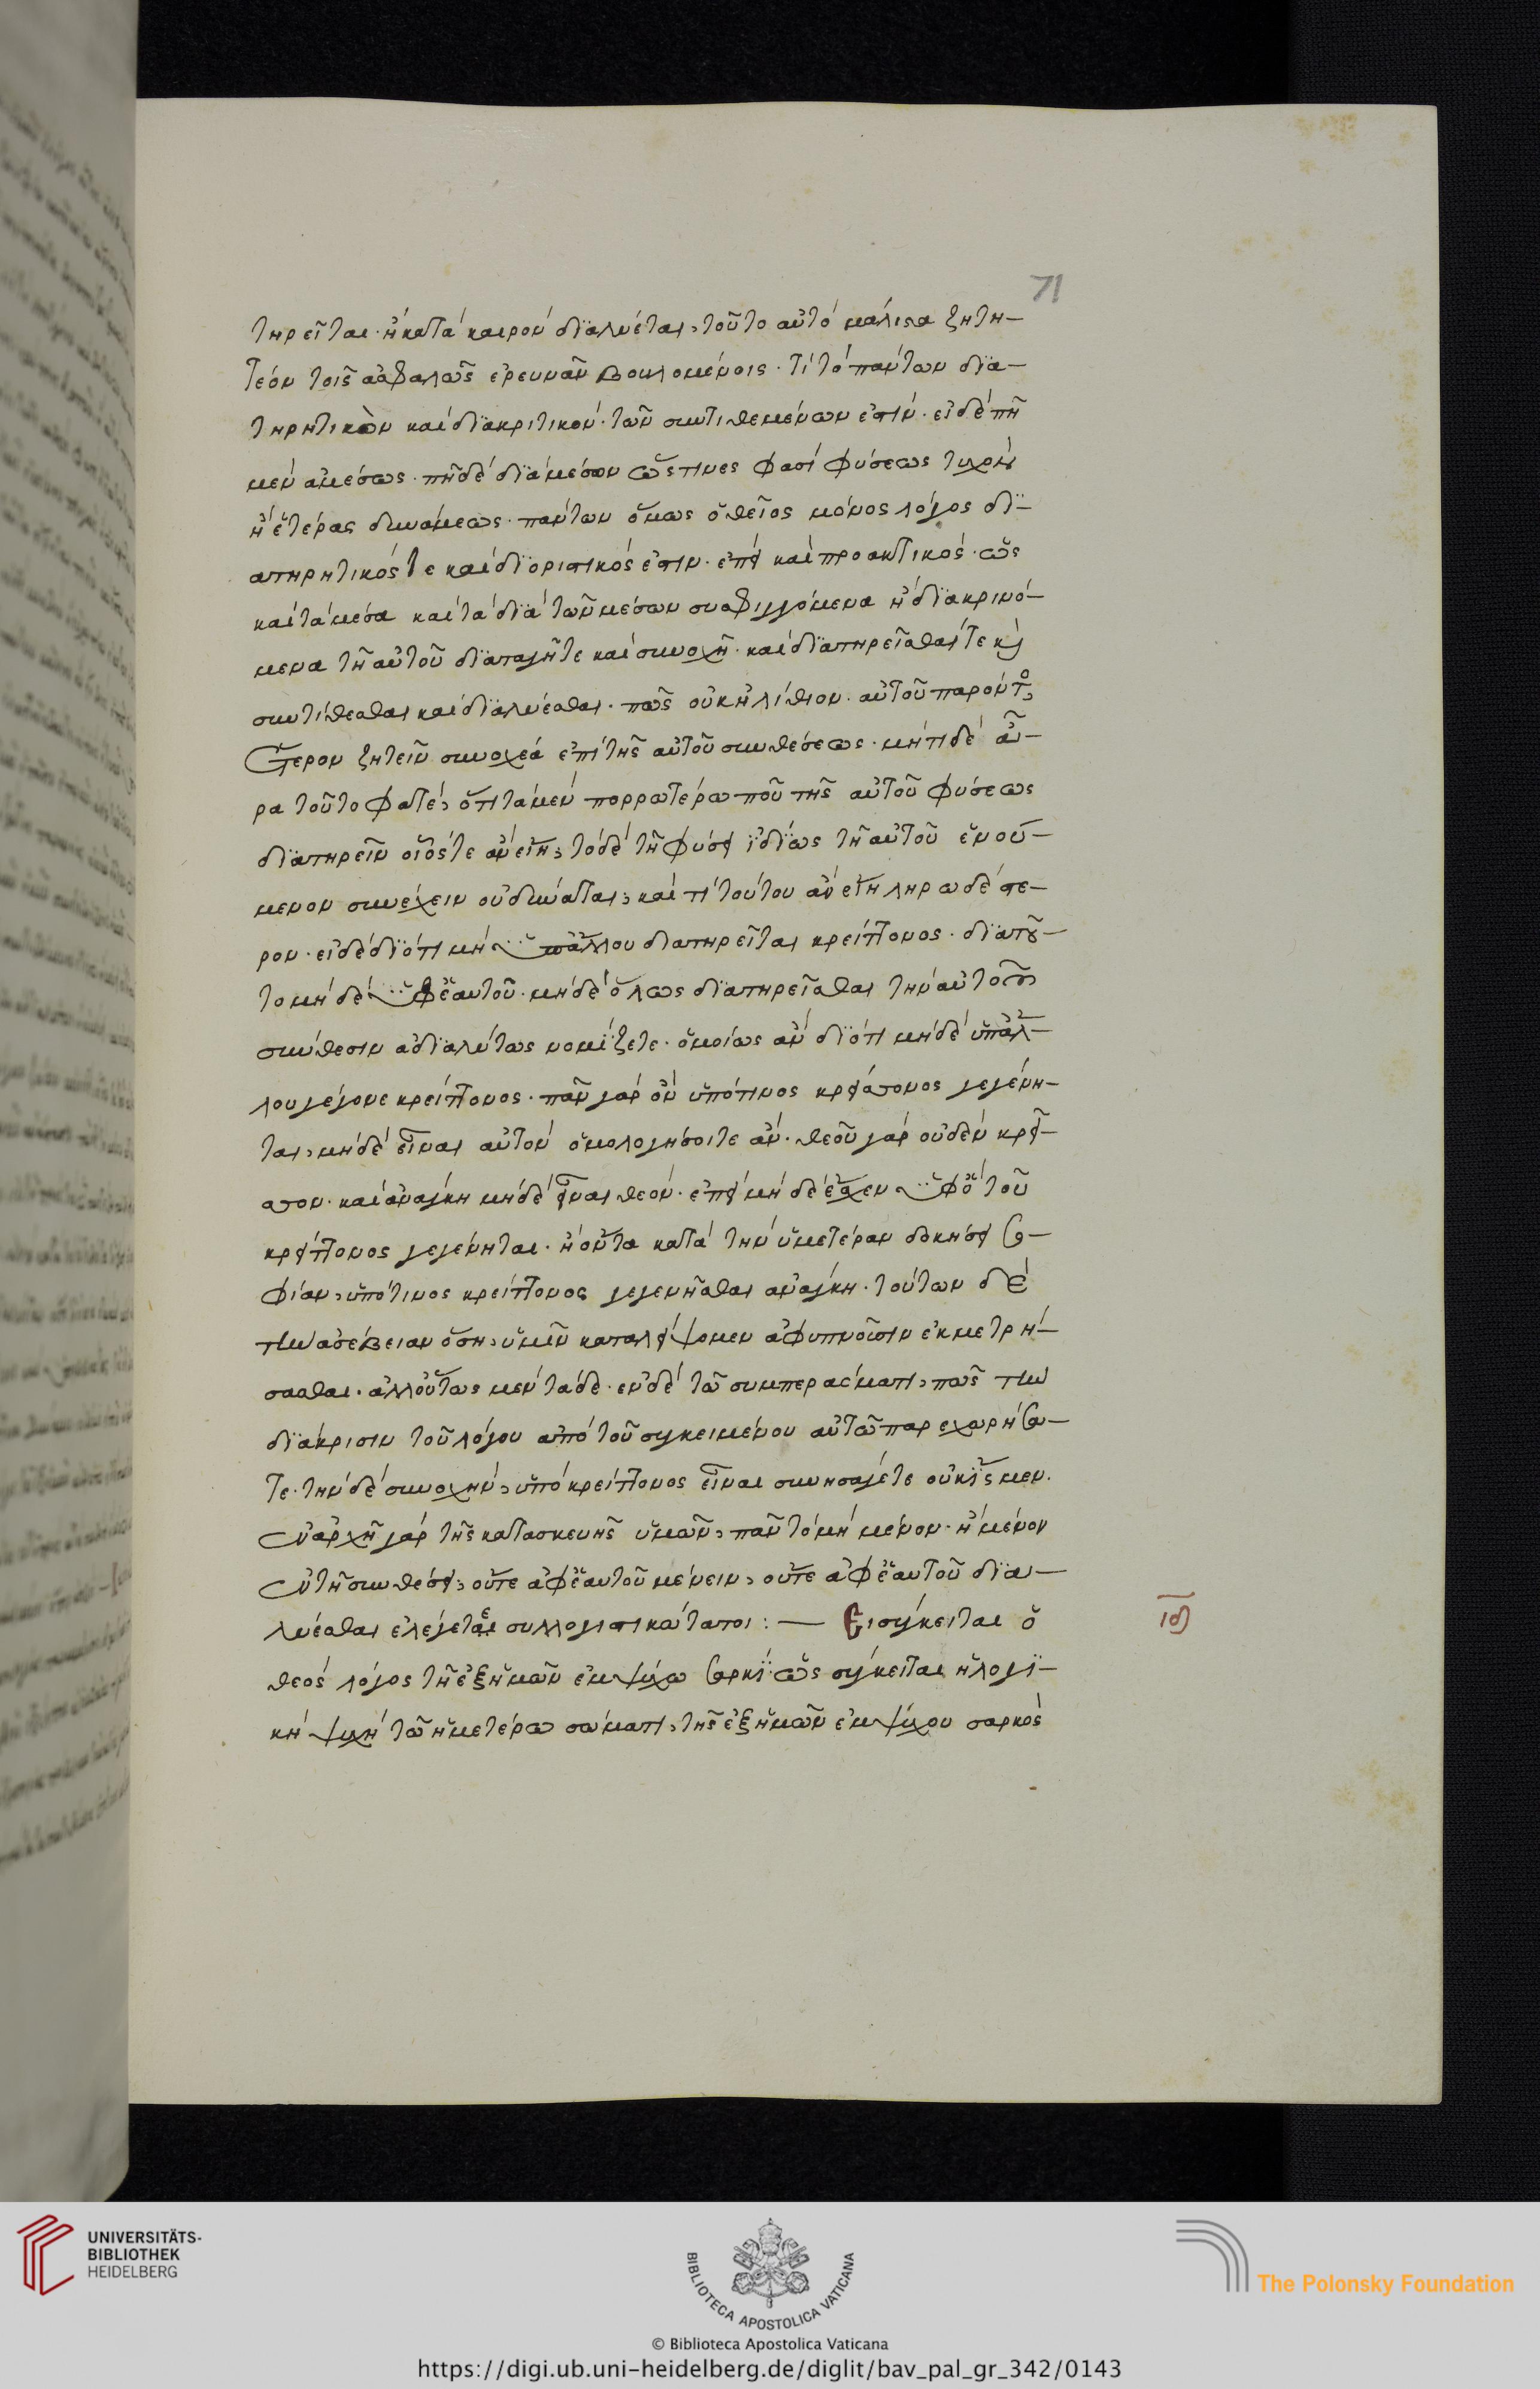 71
τηρεῖται· ἢ κατὰ καιρὸν διαλύεται, τοῦτο αὐτὸ μάλιστα ζητη-
τέον τοῖς ἀσφαλῶς ἐρευνᾶν βουλομένοις· τί τὸ πάντων δϊα-
τηρητικὸν καὶ δϊακριτικὸν· τῶν συντιθεμένων ἐστίν· εἰ δὲ πῆ
μὲν ἀμέσως· πῆ δὲ δϊὰ μέσων ὥς τινες φασὶ φύσεως τυχὸν
ἢ ἑτέρας δυνάμεως· πάντων ὅμως ὁ θεῖος μόνος λόγος δϊ-
ατηρητικός τε καὶ δϊοριστικός ἐστιν· ἐπεὶ καὶ προακτικὸς· ὡς
καὶ τὰ μέσα καὶ τὰ δϊὰ τῶν μέσων συσφιγγόμενα ἢ δϊακρινό-
μενα τῆ αὐτοῦ δϊαταγῆ τε καὶ συνοχῆ· καὶ δϊατηρεῖσθαί τε καὶ
συντίθεσθαι καὶ δϊαλύεσθαι· πῶς οὐκ ἠλίθιον· αὐτοῦ παρόντος
ἕτερον ζητεῖν συνοχέα ἐπὶ τῆς αὐτοῦ συνθέσεως· μήτι δὲ ἆ-
ρα τοῦτο φατέ, ὅτι τὰ μὲν πορρωτέρω που τῆς αὐτοῦ φύσεως
δϊατηρεῖν οἷός τε ἂν εἴη, τὸ δὲ τῆ φύσει ἰδίως τῆ αὐτοῦ ἑνού-
μενον συνέχειν οὐ δύναται, καὶ τί τούτου ἂν εἴη ληρωδέστε-
ρον· εἰ δὲ δϊότι μὴ ὑπ' ἄλλου διατηρεῖται κρείττονος· δϊὰ τοῦ-
το μὴ δὲ ὑφ' ἑαυτοῦ· μηδὲ ὅλως δϊατηρεῖσθαι τὴν αὐτοῦ
σύνθεσιν ἀδϊαλύτως νομίζετε· ὁμοίως ἂν δϊότι μηδὲ ὑπ' ἄλ-
λου γέγονε κρείττονος· πᾶν γὰρ ὂν ὑπό τινος κρείττονος γεγένη-
ται, μηδὲ εἶναι αὐτὸν ὁμολογήσοιτε ἄν· θεοῦ γὰρ οὐδὲν κρεῖ-
ττον· καὶ ἀνάγκη μηδὲ εἶναι θεὸν· ἐπεὶ μὴ δὲ ἔσχεν ὑφ' ὅτου
κρείττονος γεγένηται· ἢ ὄντα κατὰ τὴν ὑμετέραν δοκήσει σο-
φίαν, ὑπό τινος κρείττονος γεγενῆσθαι ἀνάγκη· τούτων δὲ
τὴν ἀσέβειαν ὅση, ὑμῖν καταλείψομεν ἀφυπνοῦσιν ἐκμετρή-
σασθαι· ἀλλ' οὕτως μὲν τάδε· ἐν δὲ τῶ συμπερασματι, πῶς τὴν
δϊάκρισιν τοῦ λόγου ἀπὸ τοῦ συγκειμένου αὐτῶ παρεχωρήσα-
τε· τὴν δὲ συνοχὴν, ὑπὸ κρείττονος εἶναι συνησάγετε οὐκ ἴσμεν·
ἐν ἀρχῆ γὰρ τῆς κατασκευῆς ὑμῶν, πᾶν τὸ μὴ μένον· ἢ μένον
ἐν τῆ συνθέσει, οὔτε ἀφ' ἑαυτοῦ μένειν, οὔτε ἀφ' ἑαυτοῦ δϊα-
λύεσθαι ἐλέγετε συλλογιστικώτατοι : — Εἰ σύγκειται ὁ
ιδ
θεὸς λόγος τῆ ἐξ ἡμῶν ἐμψύχω σαρκῒ· ὡς σύγκειται ἡ λογϊ-
κὴ ψυχὴ τῶ ἡμετέρω σώματι, τῆς ἐξ ἡμῶν ἐμψύχου σαρκὸς
UNIVERSITÄTS-
BIBLIOTHEK
HEIDELBERG
BIBLIOTECA APOSTOLICA VATICANA
The Polonsky Foundation
© Biblioteca Apostolica Vaticana
https://digi.ub.uni-heidelberg.de/diglit/bav_pal_gr_342/0143